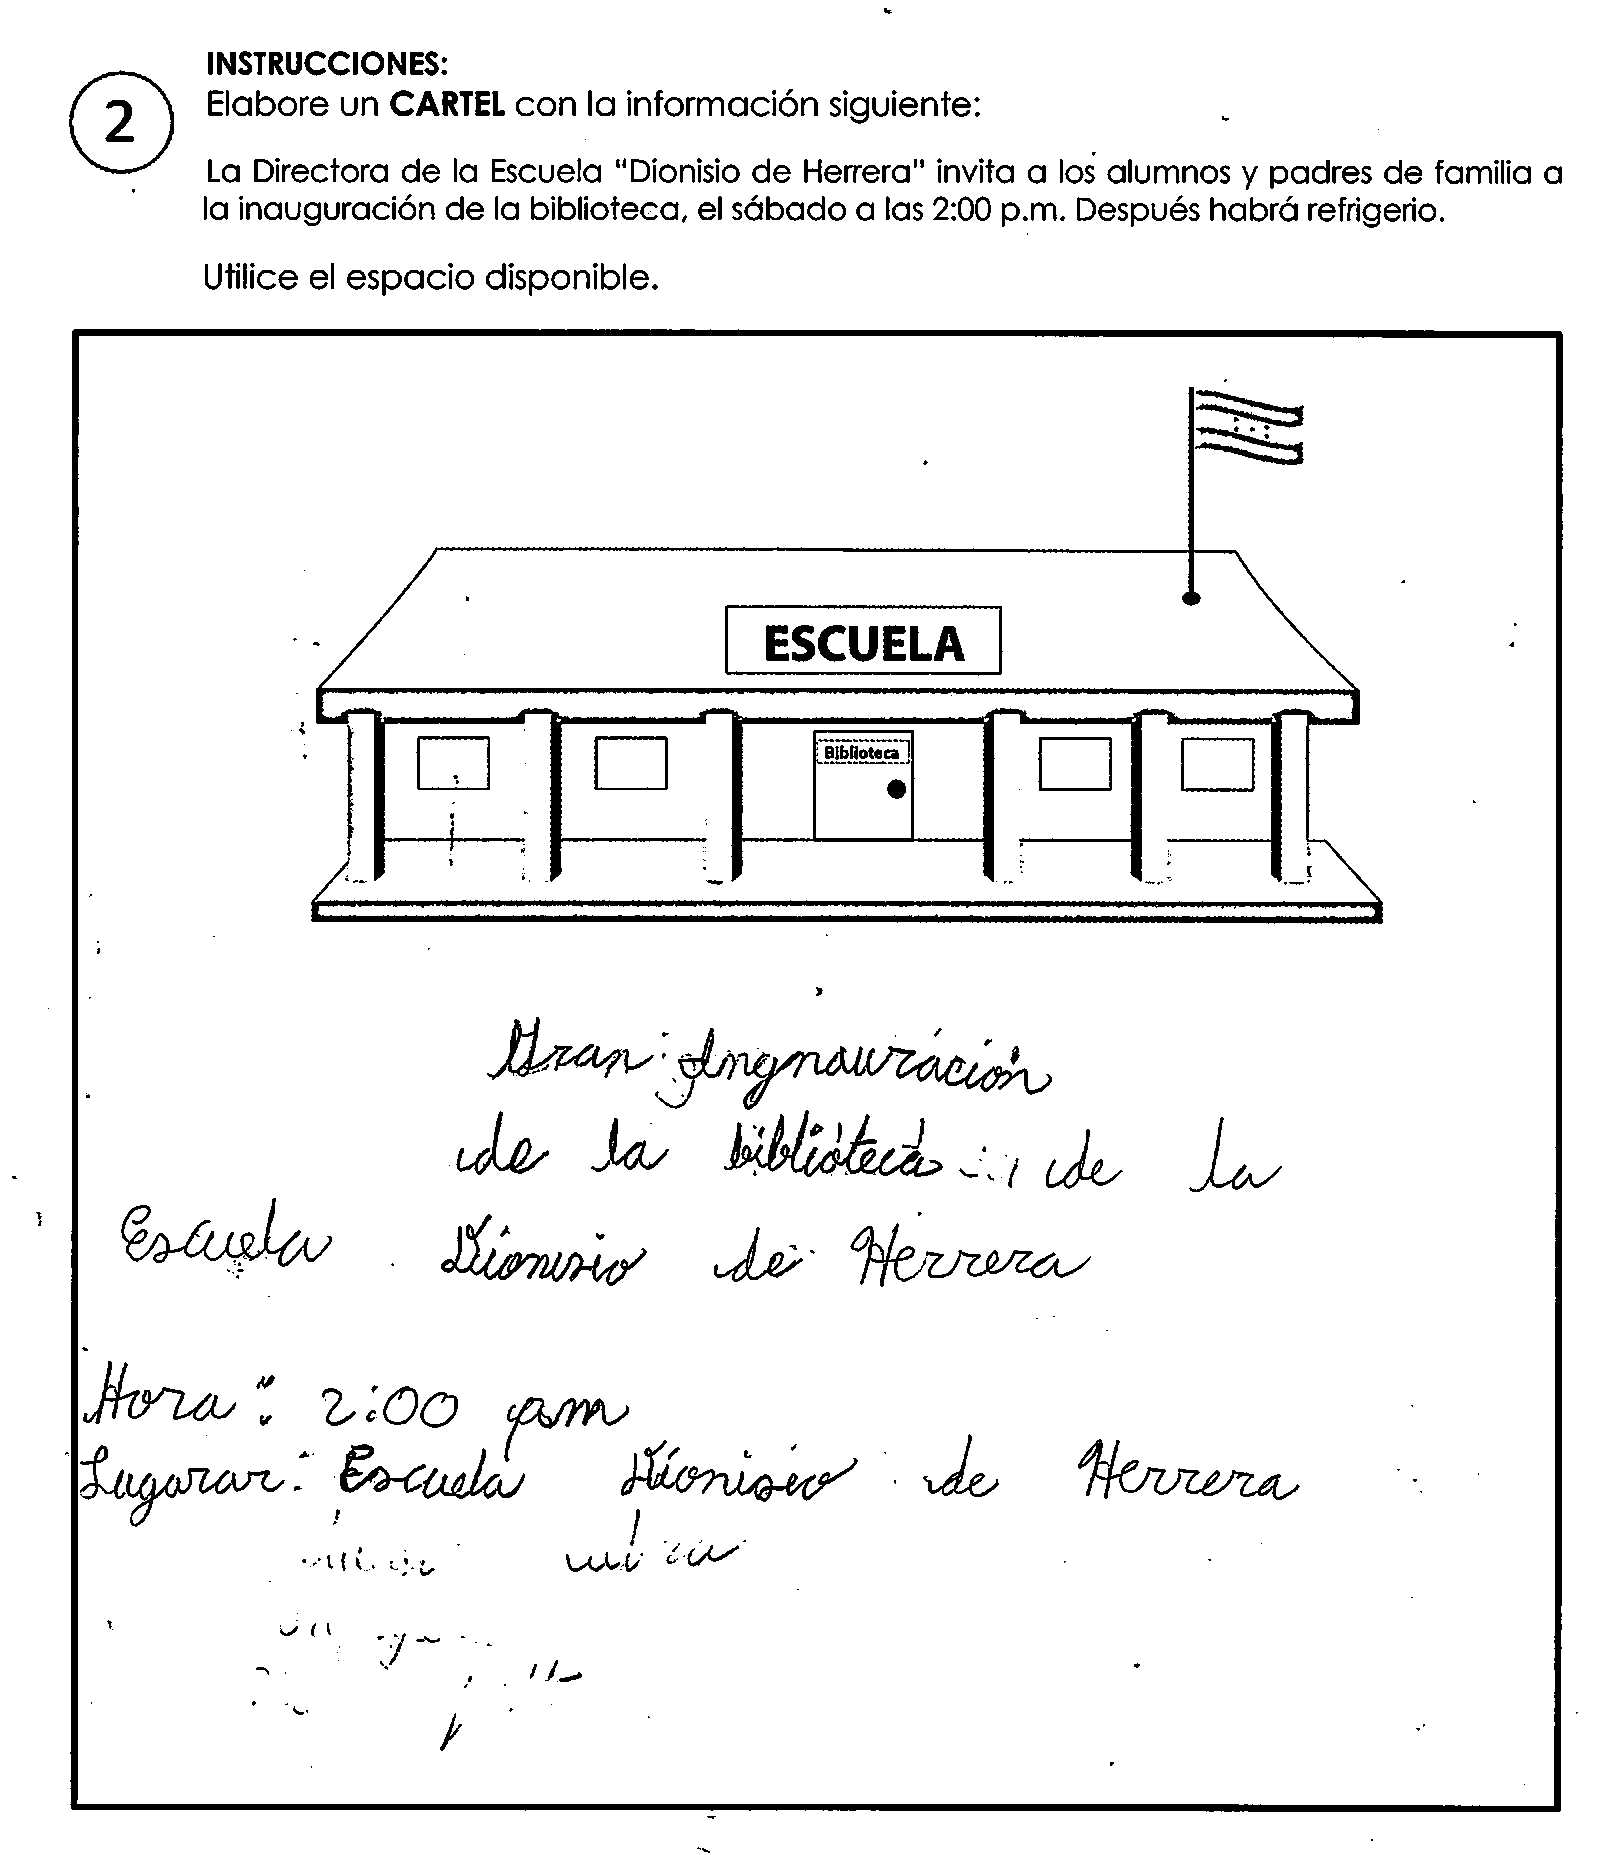 INSTRUCCIONES:
2
Elabore un CARTEL con la información siguiente:
La Directora de la Escuela "Dionisio de Herrera" invita a los alumnos y padres de familia a
la inauguración de la biblioteca, el sábado a las 2:00 p.m. Después habrá refrigerio.
Utilice el espacio disponible.
ESCUELA
Biblioteca
Gran: Ingnauración
de la biblioteca de la
Escuela Dionisio de Herrera
Hora: 2:00 pm
Lugarar: Escuela Dionisio de Herrera